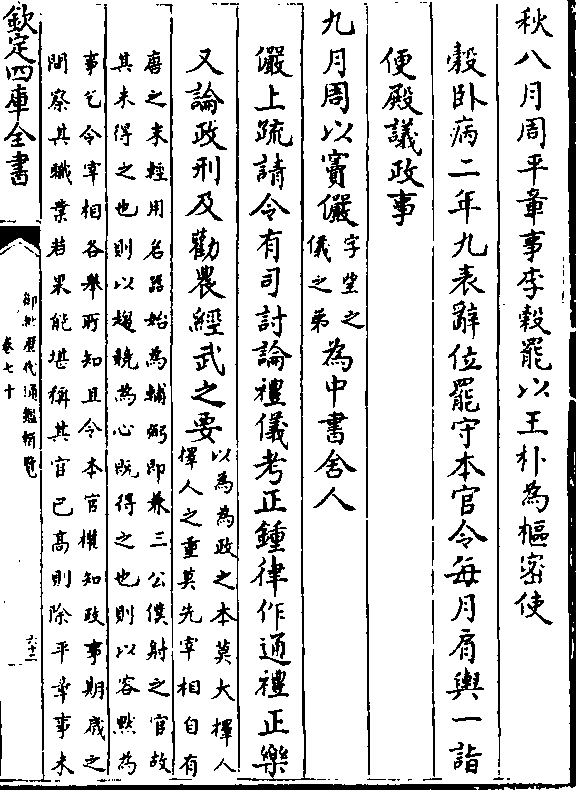 秋八月周平章事李穀罷以王朴為樞密使
穀臥病二年九表辭位罷守本官令每月肩輿一詣
便殿議政事
九月周以竇儼字望之儀之弟為中書舍人
儼上疏請令有司討論禮儀考正鍾律作通禮正樂
又論政刑及勸農經武之要以為為政之本莫大擇人擇人之重莫先宰相自有
唐之末輕用名器始為輔弼即兼三公僕射之官故
其未得之也則以趨競為心既得之也則以容默為
事乞令宰相各舉所知且令本官權知政事期歲之
間察其職業若果能堪稱其官已高則除平章事未
欽定四庫全書
御批歷代通鑑輯覽
卷七十
六十二